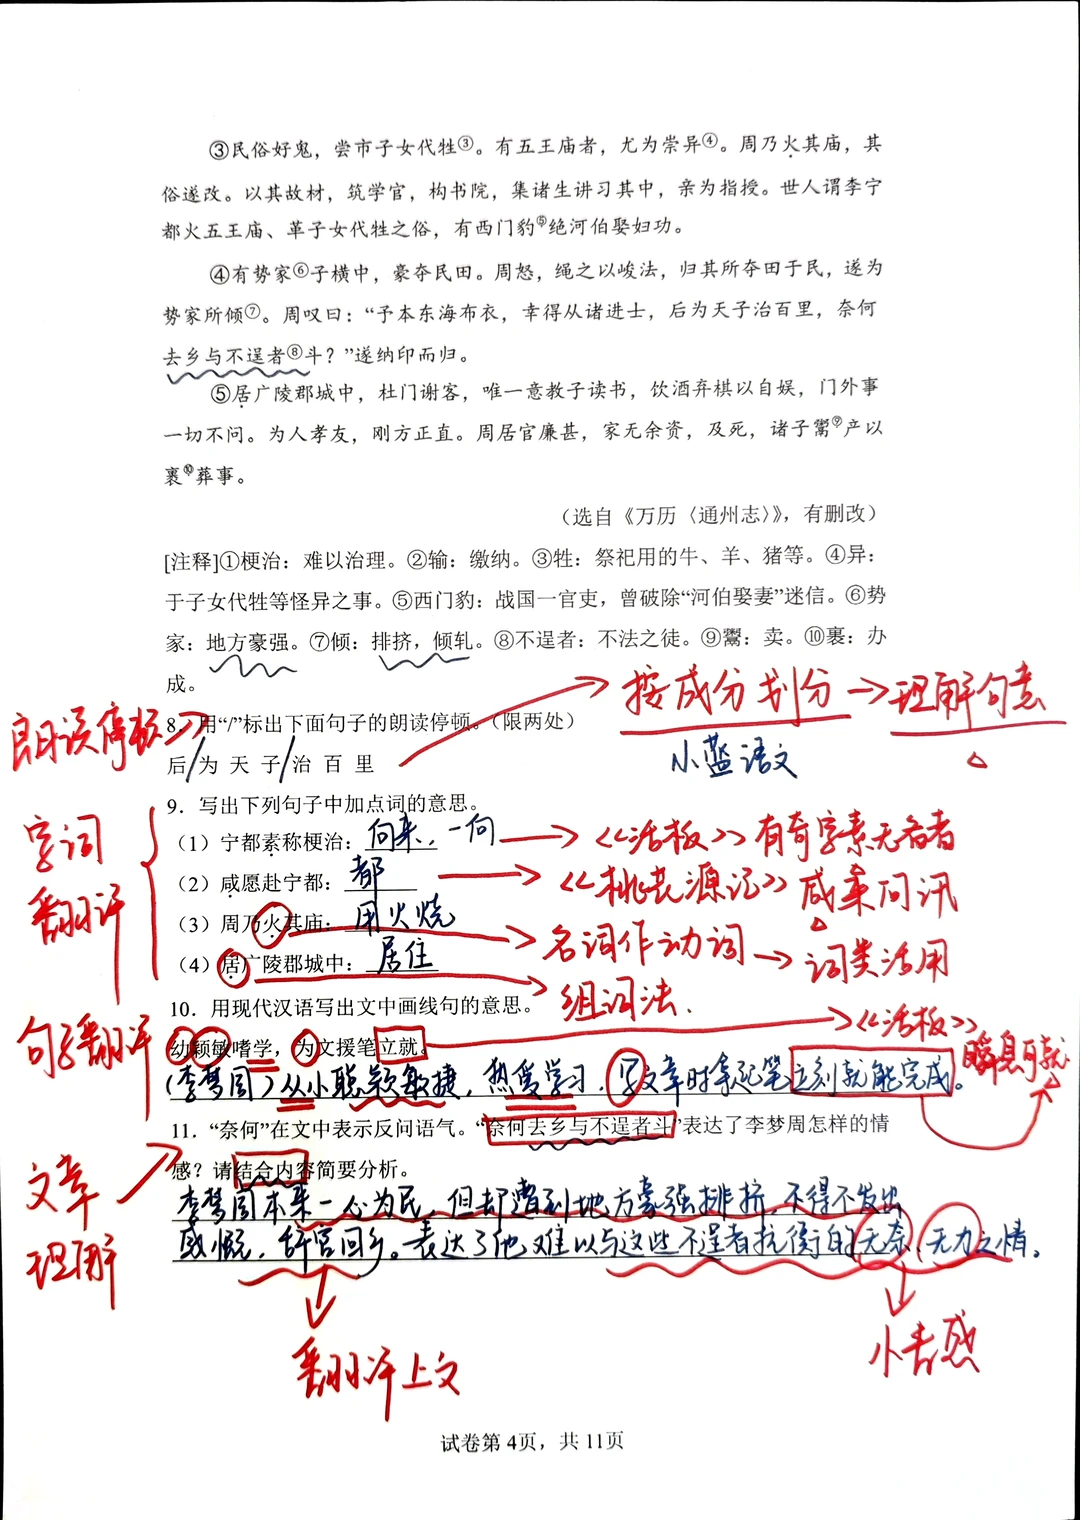 ③民俗好鬼，尝市子女代牲③。有五王庙者，尤为崇异④。周乃火其庙，其
俗遂改。以其故材，筑学官，构书院，集诸生讲习其中，亲为指授。世人谓李宁
都火五王庙、革子女代牲之俗，有西门豹⑤绝河伯娶妇功。
④有势家⑥子横中，豪夺民田。周怒，绳之以峻法，归其所夺田于民，遂为
势家所倾⑦。周叹曰：“予本东海布衣，幸得从诸进士，后为天子治百里，奈何
去乡与不逞者⑧斗？”遂纳印而归。
⑤居广陵郡城中，杜门谢客，唯一意教子读书，饮酒弃棋以自娱，门外事
一切不问。为人孝友，刚方正直。周居官廉甚，家无余资，及死，诸子鬻⑨产以
裹⑩葬事。
（选自《万历〈通州志〉》，有删改）
[注释]①梗治：难以治理。②输：缴纳。③牲：祭祀用的牛、羊、猪等。④异：
于子女代牲等怪异之事。⑤西门豹：战国一官吏，曾破除“河伯娶妻”迷信。⑥势
家：地方豪强。⑦倾：排挤，倾轧。⑧不逞者：不法之徒。⑨鬻：卖。⑩裹：办
成。
按成分划分→理解句意
朗读停顿
8．用“/”标出下面句子的朗读停顿。（限两处）
小蓝语文
后/为 天 子/治 百 里
9．写出下列句子中加点词的意思。
字词
翻译
（1）宁都素称梗治：向来，一向→《活板》有奇字素无备者
（2）咸愿赴宁都：都→《桃花源记》咸来问讯
（3）周乃火其庙：用火烧→名词作动词→词类活用
（4）居广陵郡城中：居住→组词法.
10．用现代汉语写出文中画线句的意思。
句子翻译
幼颖敏嗜学，为文援笔立就。→《活板》瞬息可就
（李梦周）从小聪颖敏捷，热爱学习，写文章时拿起笔立刻就能完成。
11．“奈何”在文中表示反问语气。“奈何去乡与不逞者斗”表达了李梦周怎样的情
感？请结合内容简要分析。
文章
理解
李梦周本来一心为民，但却遭到地方豪强排挤，不得不发出
感慨，辞官回乡。表达了他难以与这些不逞者抗衡的无奈、无力之情。
翻译上文
小春感
试卷第 4页，共 11页